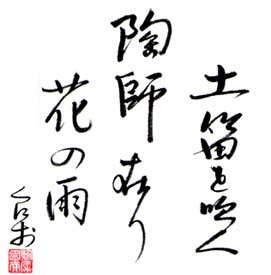 土笛を吹く
陶師在り
花の雨